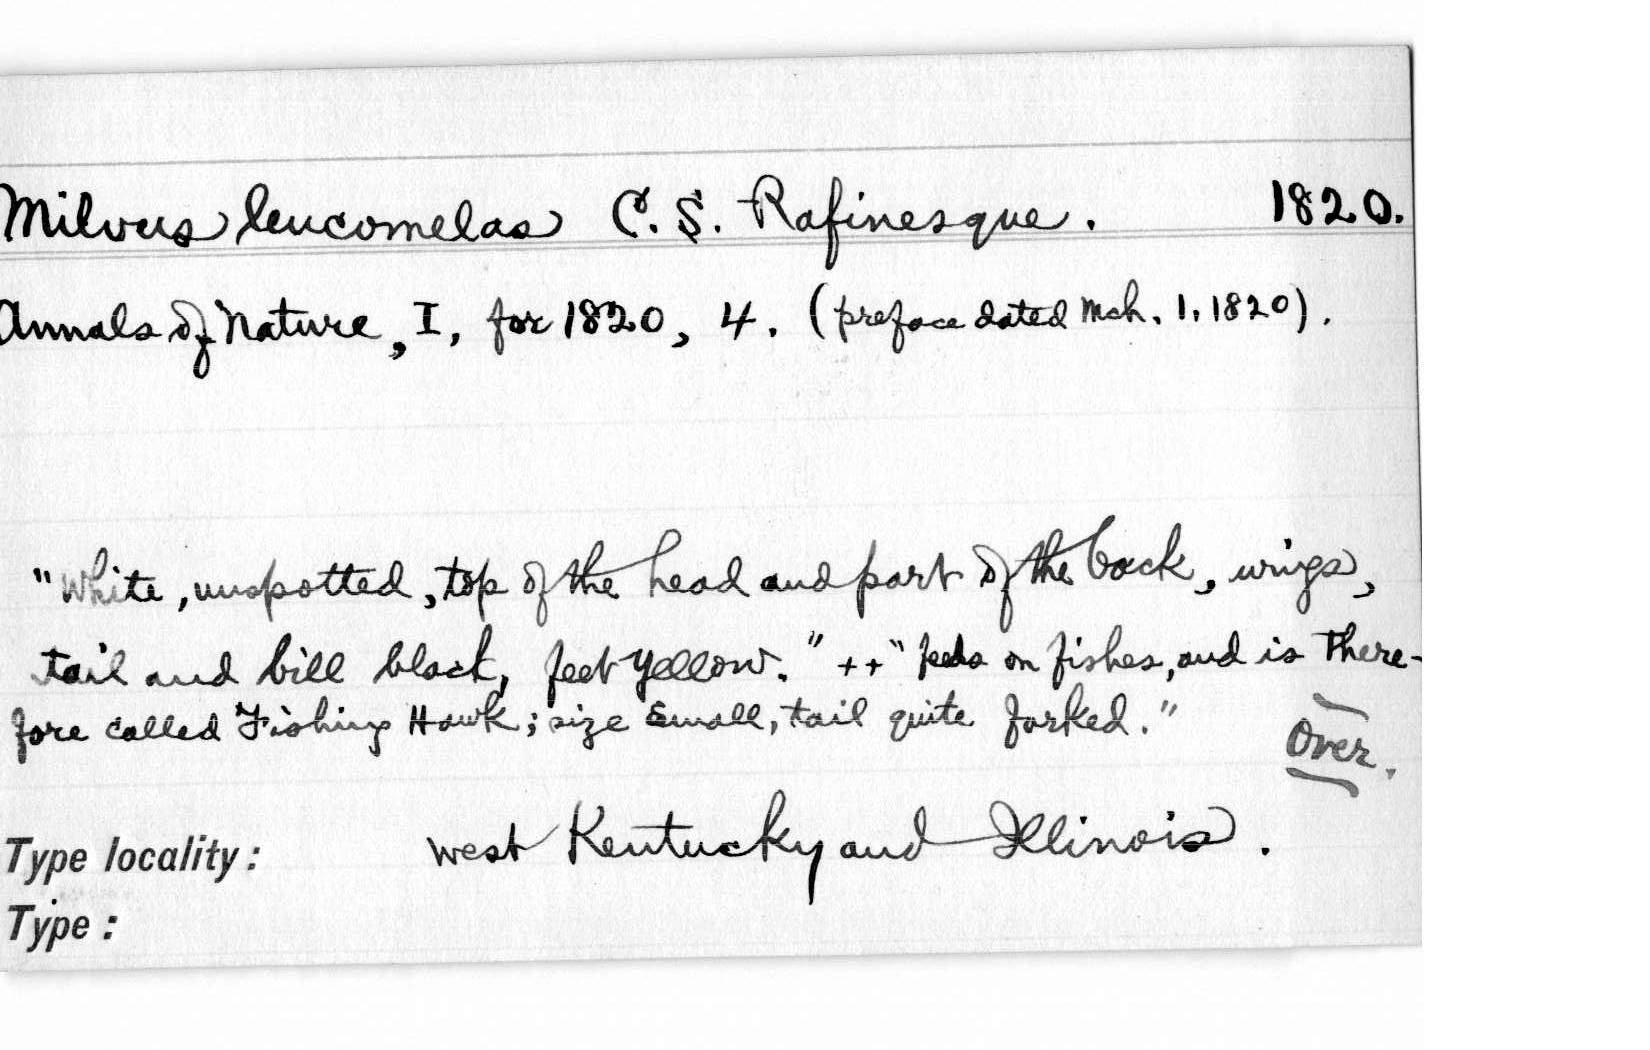 Milvus leucomelas C. S. Rafinesque. 1820.
Annals of Nature, I, for 1820, 4. (preface dated Mch. 1, 1820).
"White, unspotted, top of the head and part of the back, wings,
tail and bill black, feet yellow." ++ "feeds on fishes, and is there-
fore called Fishing Hawk; size small, tail quite forked."
Over.
Type locality: west Kentucky and Illinois.
Type: